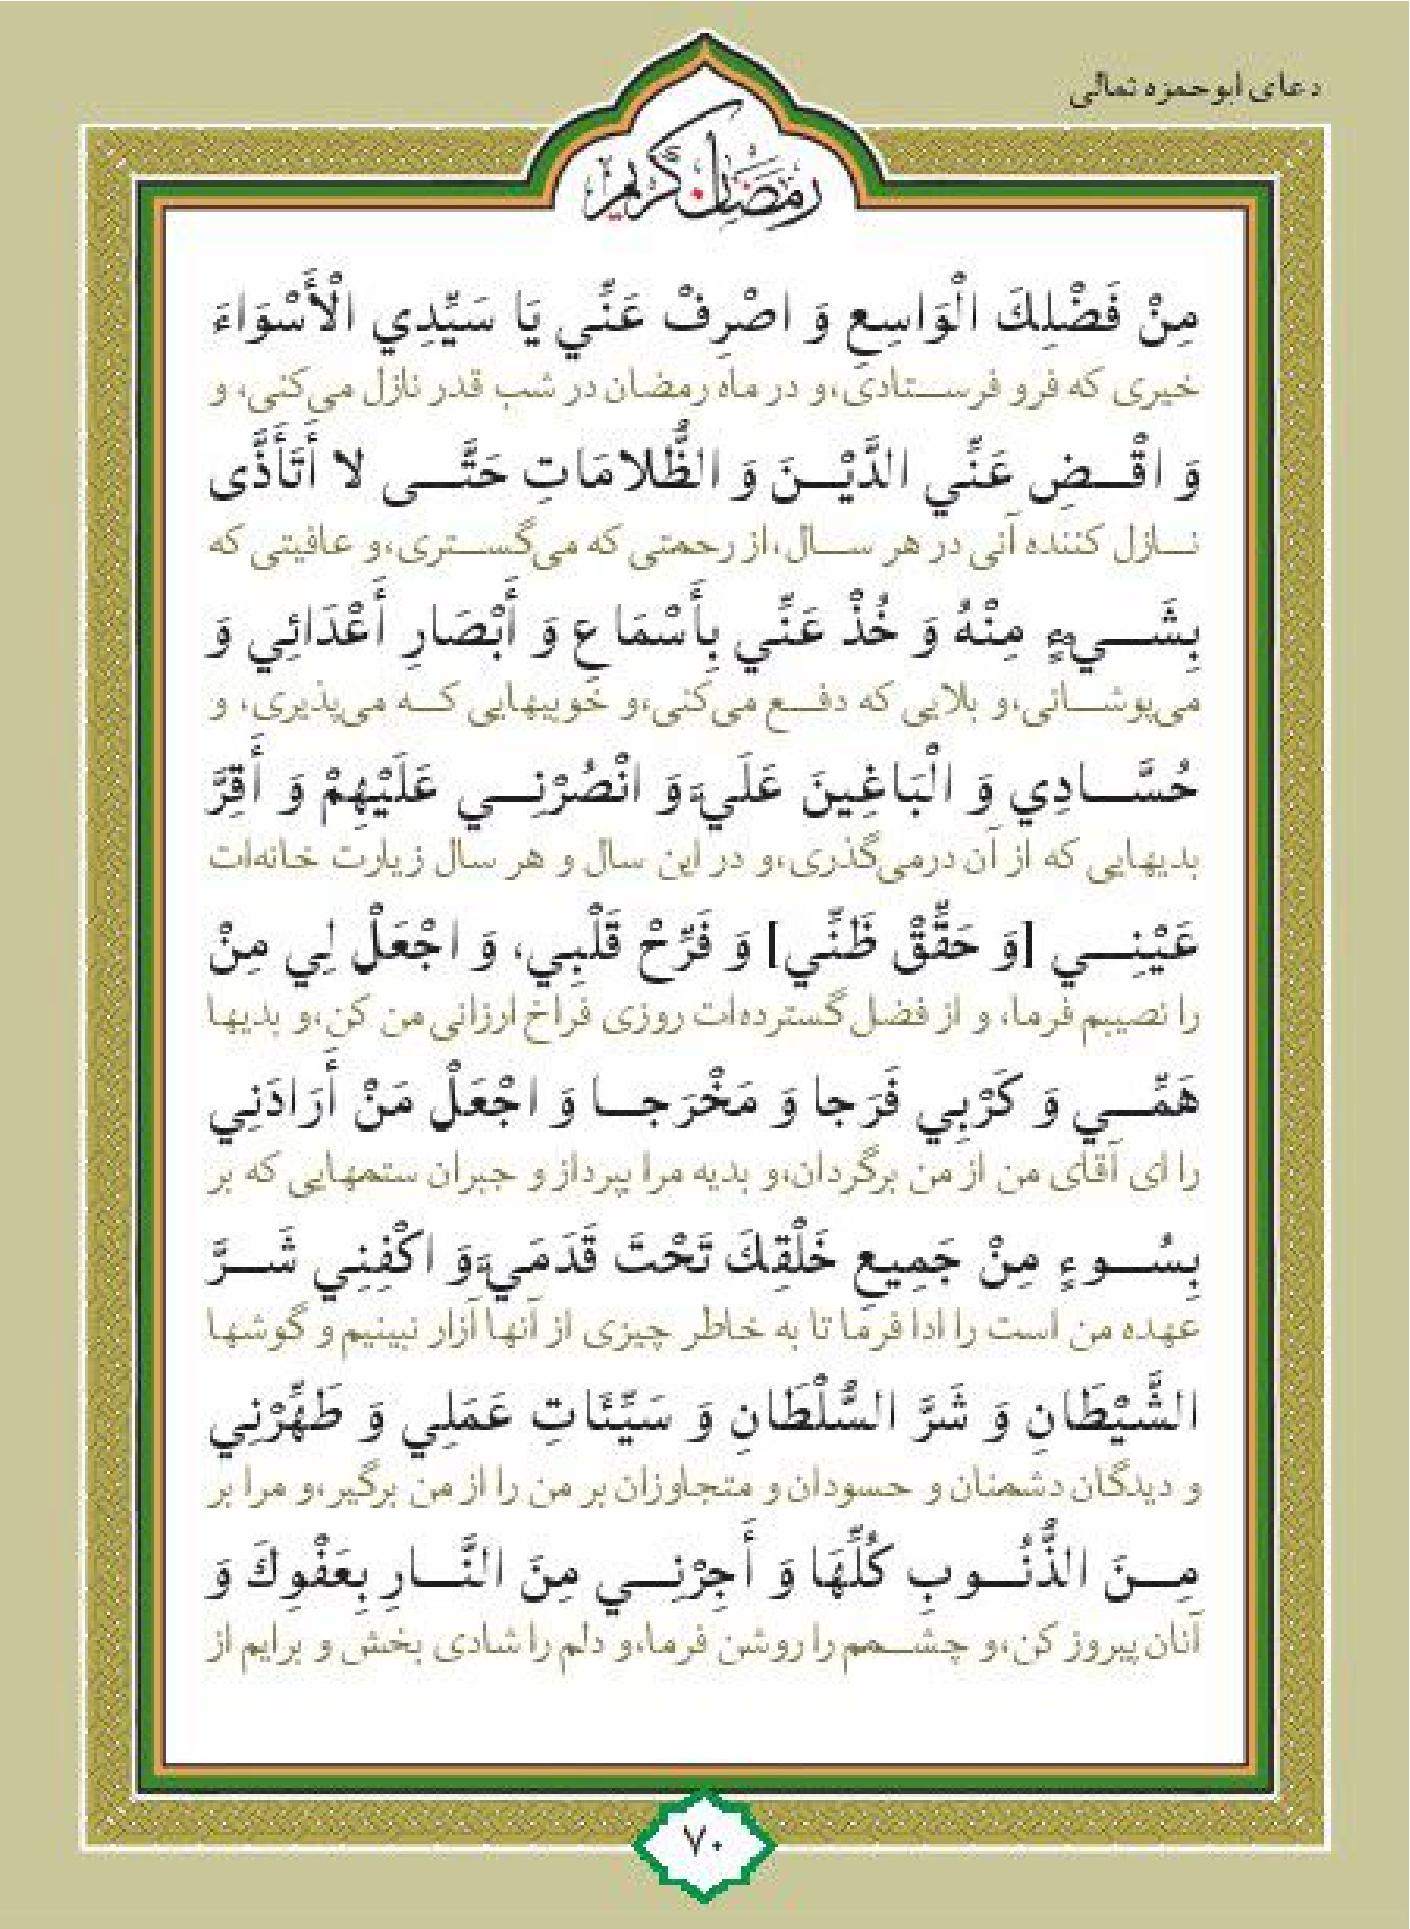 دعای ابوحمزه ثمالی
رمضان كريم
مِنْ فَضْلِكَ الْوَاسِعِ وَ اصْرِفْ عَنِّي يَا سَيِّدِي الْأَسْوَاءَ
خیری که فرو فرستادی،و در ماه رمضان در شب قدر نازل می‌کنی، و
وَ اقْضِ عَنِّي الدَّيْنَ وَ الظُّلامَاتِ حَتَّى لا أَتَأَذَّى
نازل کننده آنی در هر سال،از رحمتی که می‌گستری،و عافیتی که
بِشَيْءٍ مِنْهُ وَ خُذْ عَنِّي بِأَسْمَاعِ وَ أَبْصَارِ أَعْدَائِي وَ
می‌پوشانی،و بلایی که دفع می‌کنی،و خوبیهایی که می‌پذیری، و
حُسَّادِي وَ الْبَاغِينَ عَلَيَّ وَ انْصُرْنِي عَلَيْهِمْ وَ أَقِرَّ
بدیهایی که از آن درمی‌گذری،و در این سال و هر سال زیارت خانه‌ات
عَيْنِي [وَ حَقِّقْ ظَنِّي] وَ فَرِّحْ قَلْبِي، وَ اجْعَلْ لِي مِنْ
را نصیبم فرما، و از فضل گسترده‌ات روزی فراخ ارزانی من کن،و بدیها
هَمِّي وَ كَرْبِي فَرَجا وَ مَخْرَجا وَ اجْعَلْ مَنْ أَرَادَنِي
را ای آقای من از من برگردان،و بدیه مرا بپرداز و جبران ستمهایی که بر
بِسُوءٍ مِنْ جَمِيعِ خَلْقِكَ تَحْتَ قَدَمَيَّ وَ اكْفِنِي شَرَّ
عهده من است را ادا فرما تا به خاطر چیزی از آنها آزار نبینیم و گوشها
الشَّيْطَانِ وَ شَرَّ السُّلْطَانِ وَ سَيِّئَاتِ عَمَلِي وَ طَهِّرْنِي
و دیدگان دشمنان و حسودان و متجاوزان بر من را از من برگیر،و مرا بر
مِنَ الذُّنُوبِ كُلِّهَا وَ أَجِرْنِي مِنَ النَّارِ بِعَفْوِكَ وَ
آنان پیروز کن،و چشمم را روشن فرما،و دلم را شادی بخش و برایم از
۷۰